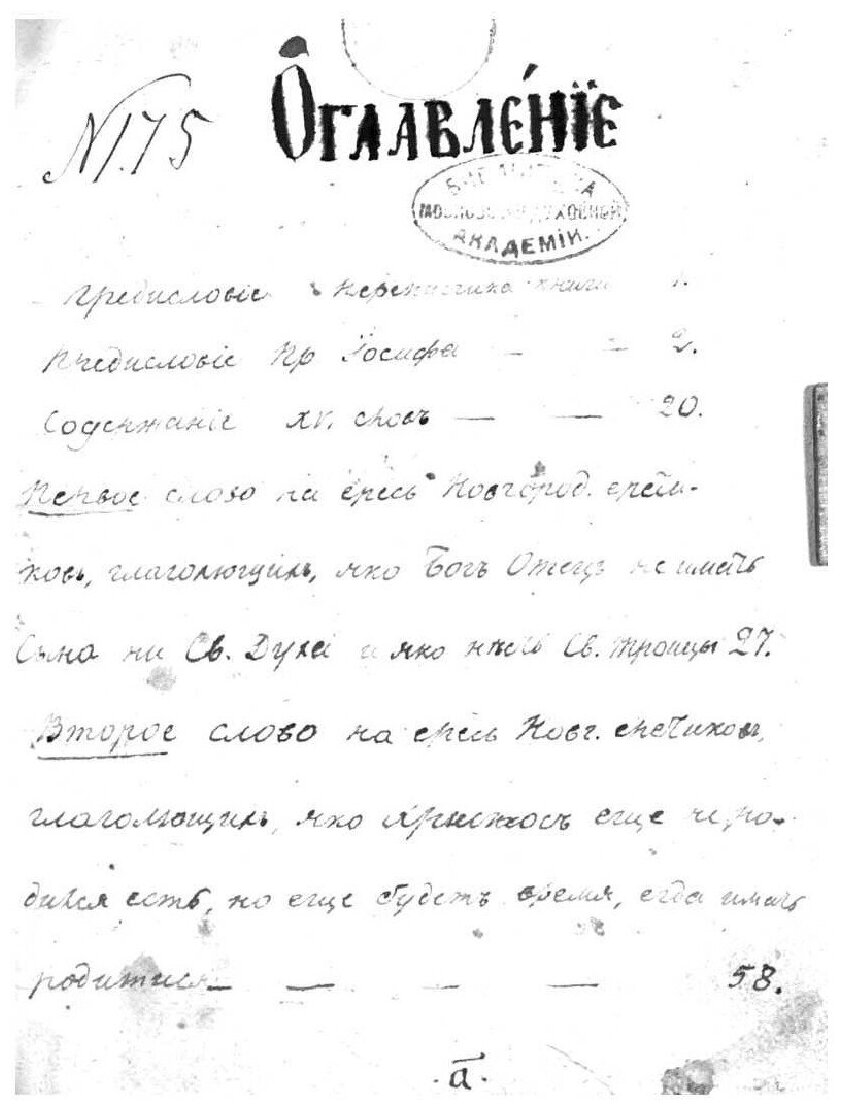 № 175
Оглавле́нїе
БИБЛИОТЕКА
МОСКОВСКОЙ ДУХОВНОЙ
АКАДЕМІИ.
Предисловіе переписчика книги 1.
Предисловіе Пр Іосифа — — 2.
Содержаніе XV. словъ — — 20.
Первое слово на ересь Новгород. ерети-
ковъ, глаголющихъ, яко Богъ Отецъ не иматъ
Сына ни Св. Духа и яко нѣсть Св. Троицы 27.
Второе слово на ересь Новг. еретиковъ,
глаголющихъ, яко Христосъ еще не ро-
дился есть, но еще будетъ время, егда имать
родитися — — — — 58.
. а҃ .